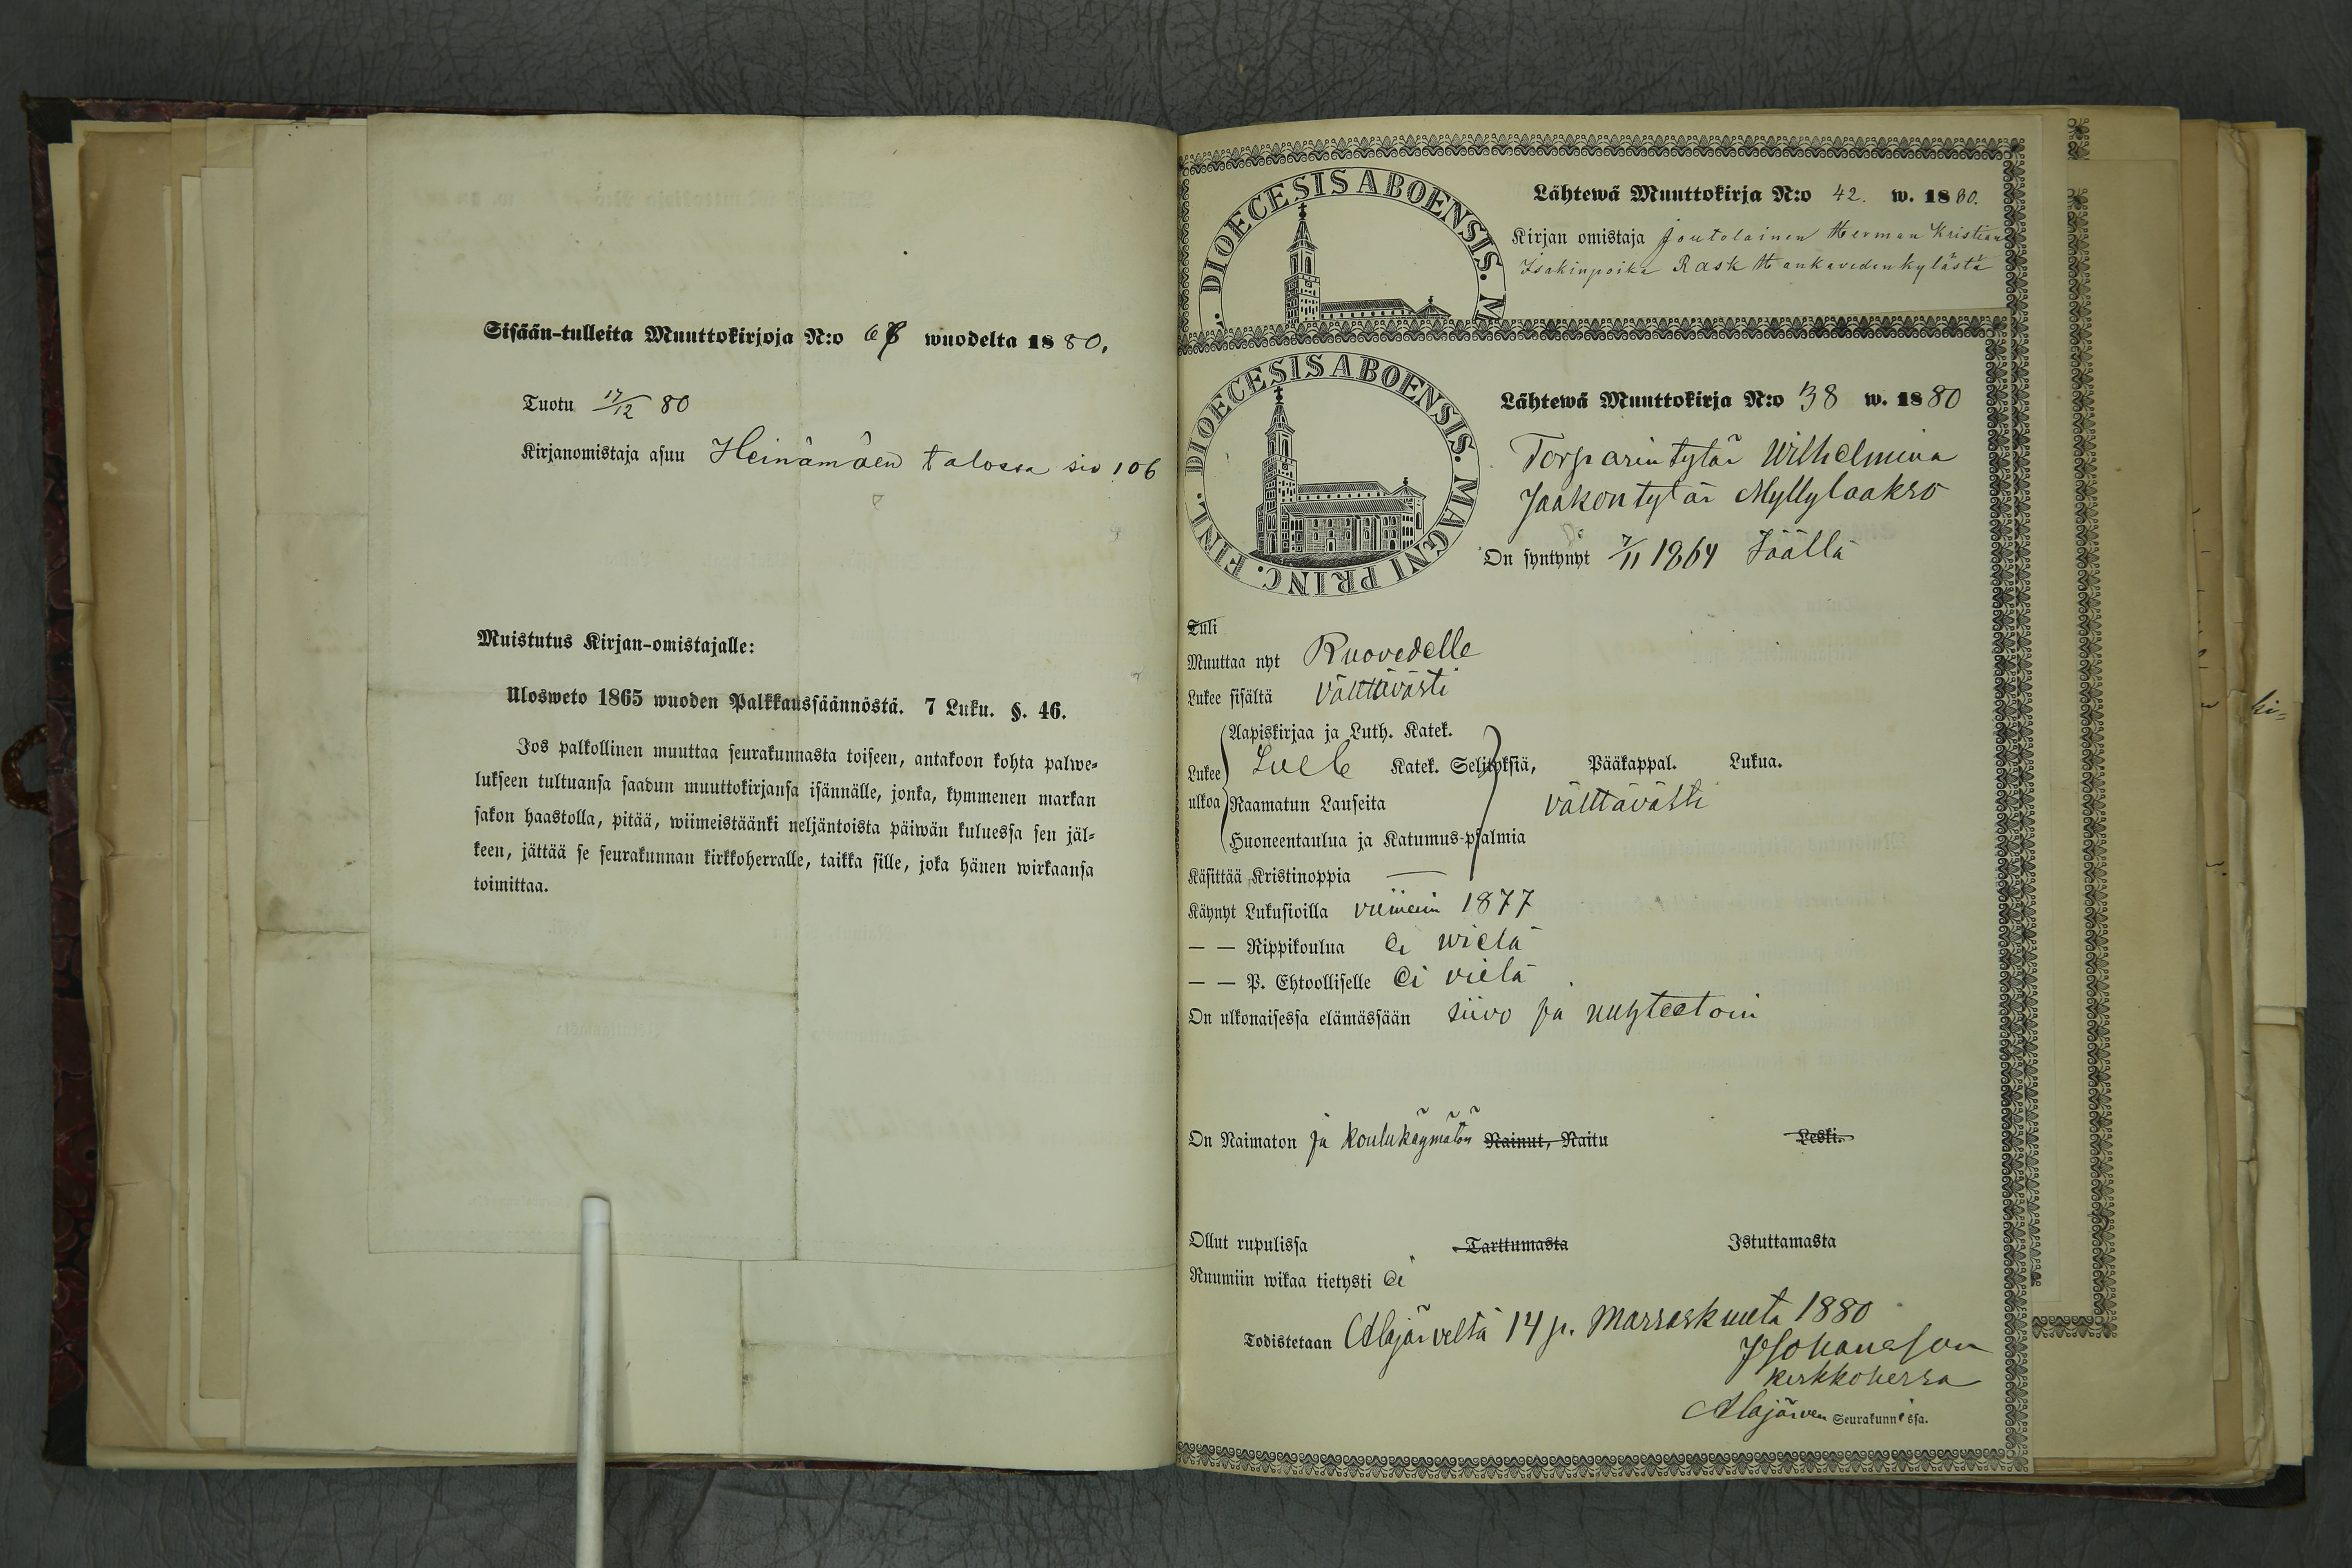 Sisään-tulleita Muuttokirjoja N:o wuodelta 1880.
Tuotu 17/12 80
Kirjanomistaja asuu Heinämäen talossa siv 106
Muistutus Kirjan-omistajalle:
Ulosweto 1865 wuoden Palkkaussäännöstä. 7 Luku. §. 46.
Jos palkollinen muuttaa seurakunnasta toiseen, antakoon kohta palwe-
lukseen tultuansa saadun muuttokirjansa isännälle, jonka, kymmenen markan
sakon haastolla, pitää, wiimeistäänki neljäntoista päiwän kuluessa sen jäl-
keen, jättää se seurakunnan kirkkoherralle, taikka sille, joka hänen wirkaansa
toimittaa.
DIOECESIS ABOENSIS. M
Lähtewä Muuttokirja N:o 42. w. 1880.
Kirjan omistaja Joutolainen Herman Kristian
Isakinpoika Rask Hankavedenkylästä
DIOECESIS ABOENSIS. MAGNI PRINC. FINL.
Lähtewä Muuttokirja N:o 38 w. 1880
Torparin tytär Wilhelmina
Jaakontytär Myllylaakso
On syntynyt 7/11 1864 täällä
Tuli
Muuttaa nyt Ruovedelle
Lukee sisältä välttävästi
Aapiskirjaa ja Luth. Katek.
Lukee Katek. Selityksiä, Pääkappal. Lukua.
ulkoa Raamatun Lauseita välttävästi
Huoneentaulua ja Katumus-psalmia
Käsittää Kristinoppia —
Käynyt Lukusioilla viimein 1877
— — Rippikoulua ei wielä
— — P. Ehtoolliselle ei vielä
On ulkonaisessa elämässään siivo ja nuhteetoin
On Naimaton ja koulukäymätön Nainut, Naitu Leski.
Ollut rupulissa Tarttumasta Istuttamasta
Ruumiin wikaa tietysti ei
Todistetaan Alajärveltä 14 p. Marraskuuta 1880
Johansson
kirkkoherra
Alajärven Seurakunnissa.
ki=